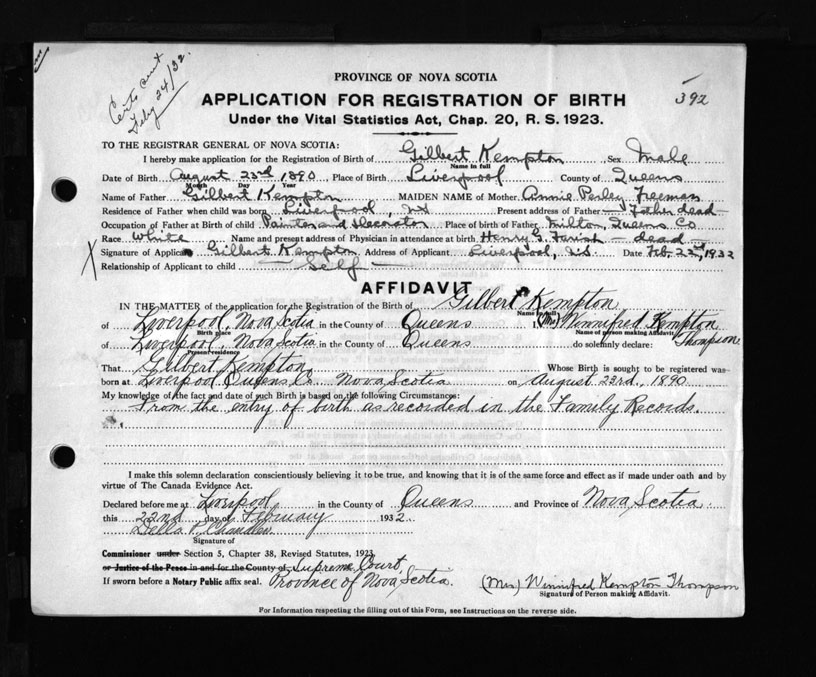 Certs sent
Feby 24/32.
392
PROVINCE OF NOVA SCOTIA
APPLICATION FOR REGISTRATION OF BIRTH
Under the Vital Statistics Act, Chap. 20, R. S. 1923.
TO THE REGISTRAR GENERAL OF NOVA SCOTIA:
I hereby make application for the Registration of Birth of Gilbert Kempton Sex Male
Name in full
Date of Birth August 23rd 1890 Place of Birth Liverpool County of Queens
Month Day Year
Name of Father Gilbert Kempton MAIDEN NAME of Mother Annie Perley Freeman
Residence of Father when child was born Liverpool, NS Present address of Father Father dead
Occupation of Father at Birth of child Painter and Decorator Place of Birth of Father Milton, Queens Co
Race White Name and present address of Physician in attendance at birth Henry G. Farish - dead
X Signature of Applicant Gilbert Kempton Address of Applicant Liverpool, N.S. Date Feb. 22nd, 1932
Relationship of Applicant to child Self
AFFIDAVIT
IN THE MATTER of the application for the Registration of the Birth of Gilbert Kempton
Name in full
of Liverpool, Nova Scotia in the County of Queens I, (Mrs) Winnifred Kempton
Birth place Name of person making Affidavit
of Liverpool, Nova Scotia in the County of Queens do solemnly declare: Thompson
Present residence
That Gilbert Kempton Whose Birth is sought to be registered was
born at Liverpool Queens Co. Nova Scotia on August 23rd, 1890
My knowledge of the fact and date of such Birth is based on the following Circumstances:
From the entry of birth as recorded in the Family Records.
I make this solemn declaration conscientiously believing it to be true, and knowing that it is of the same force and effect as if made under oath and by
virtue of The Canada Evidence Act.
Declared before me at Liverpool in the County of Queens and Province of Nova Scotia
this 22nd day of February 1932.
Della P. Chandler
Signature of
Commissioner under Section 5, Chapter 38, Revised Statutes, 1923,
or Justice of the Peace in and for the County of Supreme Court,
If sworn before a Notary Public affix seal. Province of Nova Scotia.
(Mrs) Winnifred Kempton Thompson
Signature of Person making Affidavit.
For Information respecting the filling out of this Form, see Instructions on the reverse side.